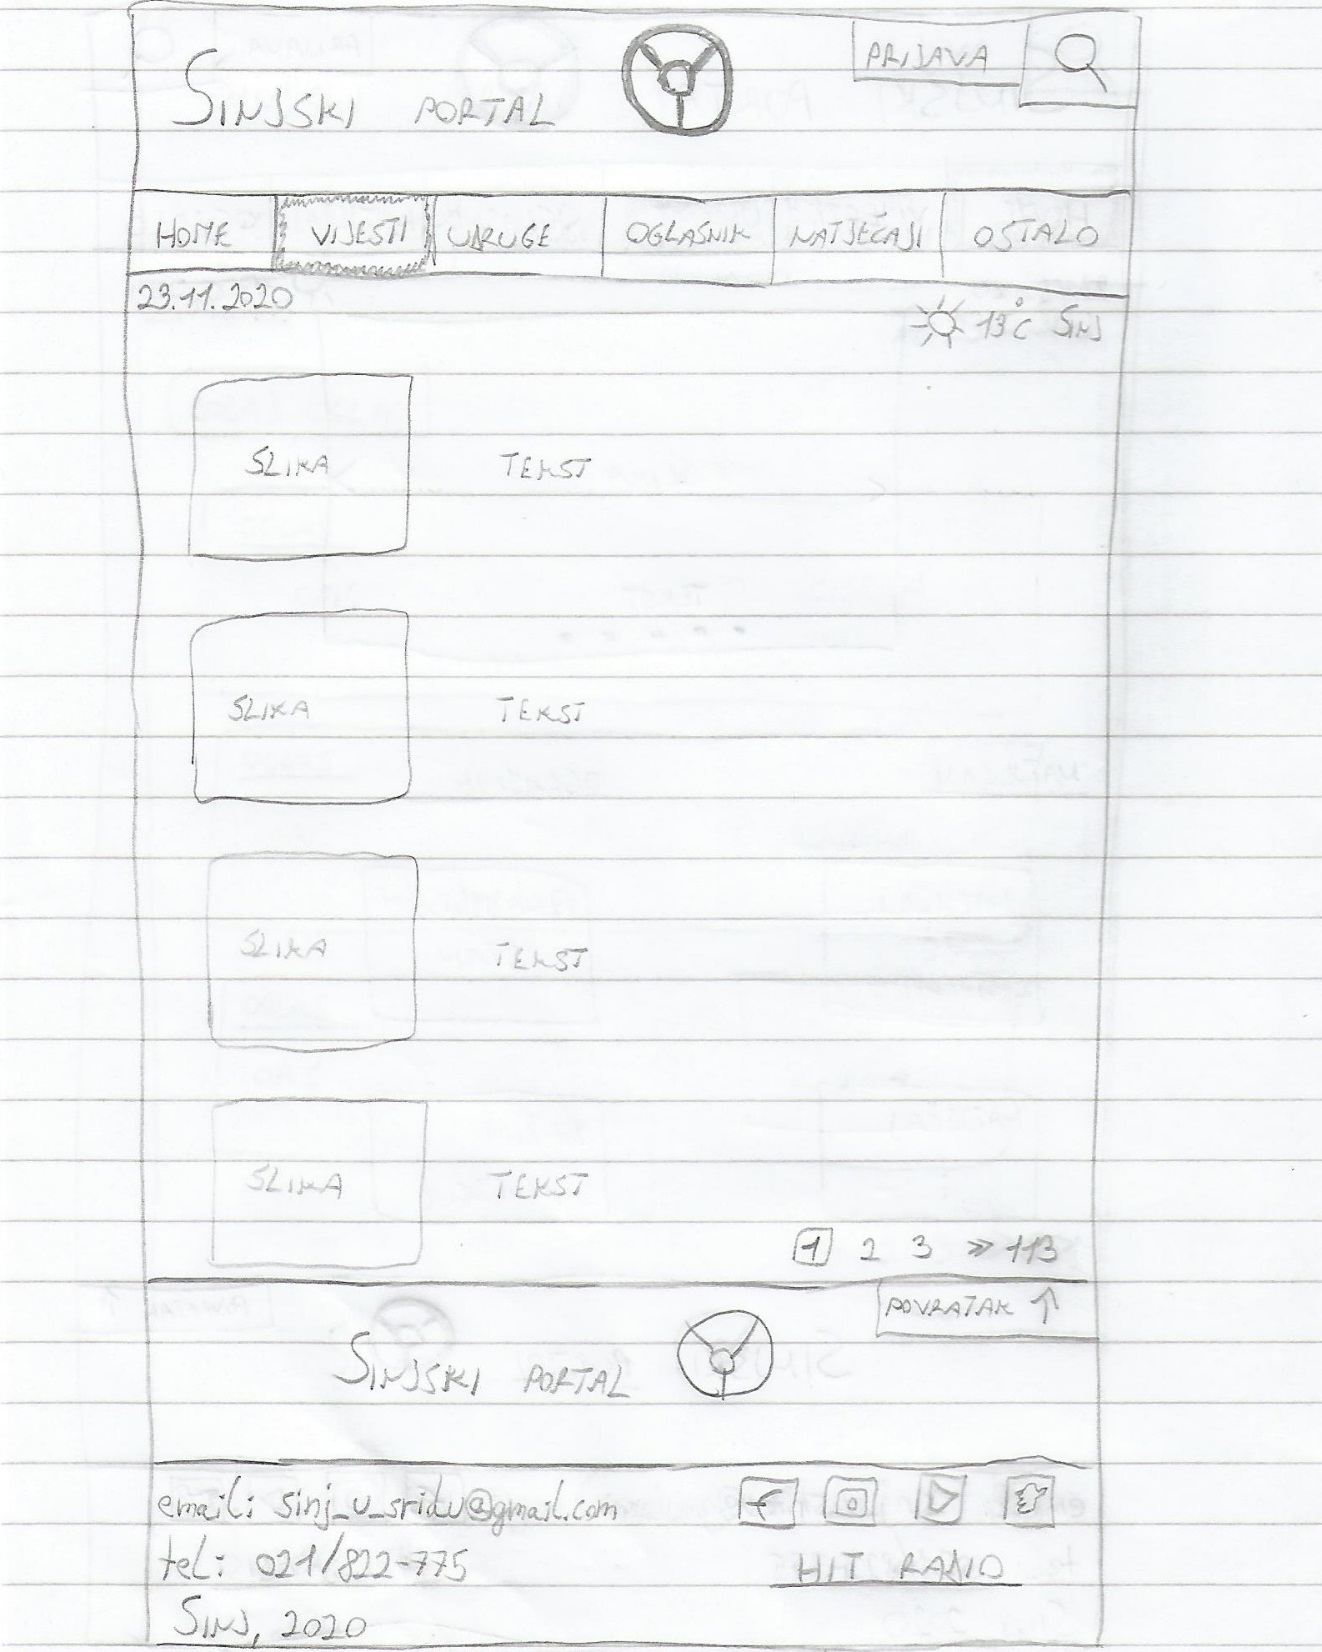 SINJSKI PORTAL
PRIJAVA
HOME VIJESTI UDRUGE OGLASNIK NATJEČAJI OSTALO
23.11.2020
13°C SINJ
SLIKA TEKST
SLIKA TEKST
SLIKA TEKST
SLIKA TEKST
1 2 3 » 113
POVRATAK ↑
SINJSKI PORTAL
email: sinj_u_sridu@gmail.com
tel: 021/822-775
HIT RADIO
SINJ, 2020